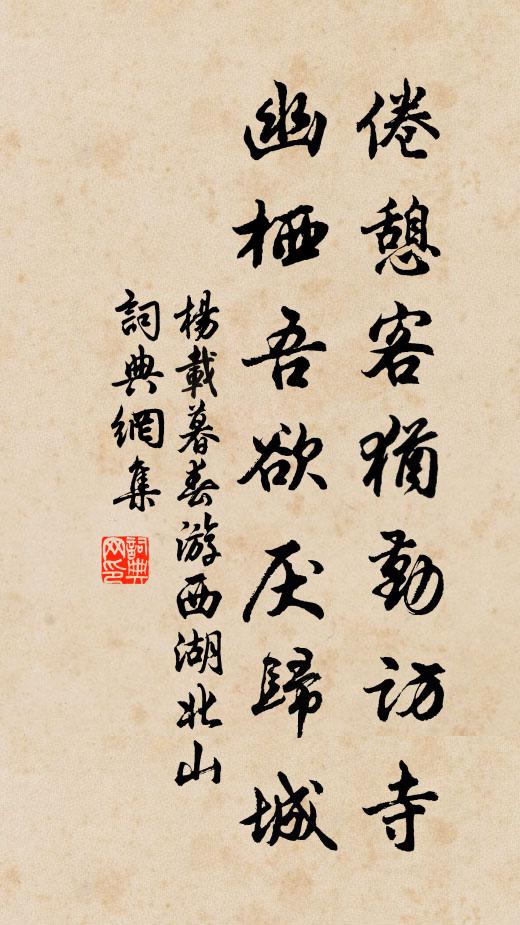 倦憩客猶勤訪寺
幽栖吾欲厌歸城
楊載暮春游西湖北山
詞典網集
詞典网印